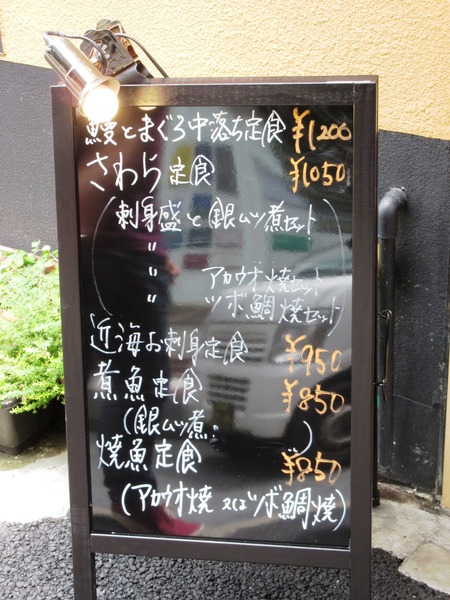 鰻とまぐろ中落ち定食 ¥1200
さわら定食 ¥1050
(刺身盛と銀ムツ煮セット
〃 アカウオ焼セット
〃 ツボ鯛焼セット)
近海お刺身定食 ¥950
煮魚定食 ¥850
(銀ムツ煮: )
焼魚定食 ¥850
(アカウオ焼 又はツボ鯛焼)